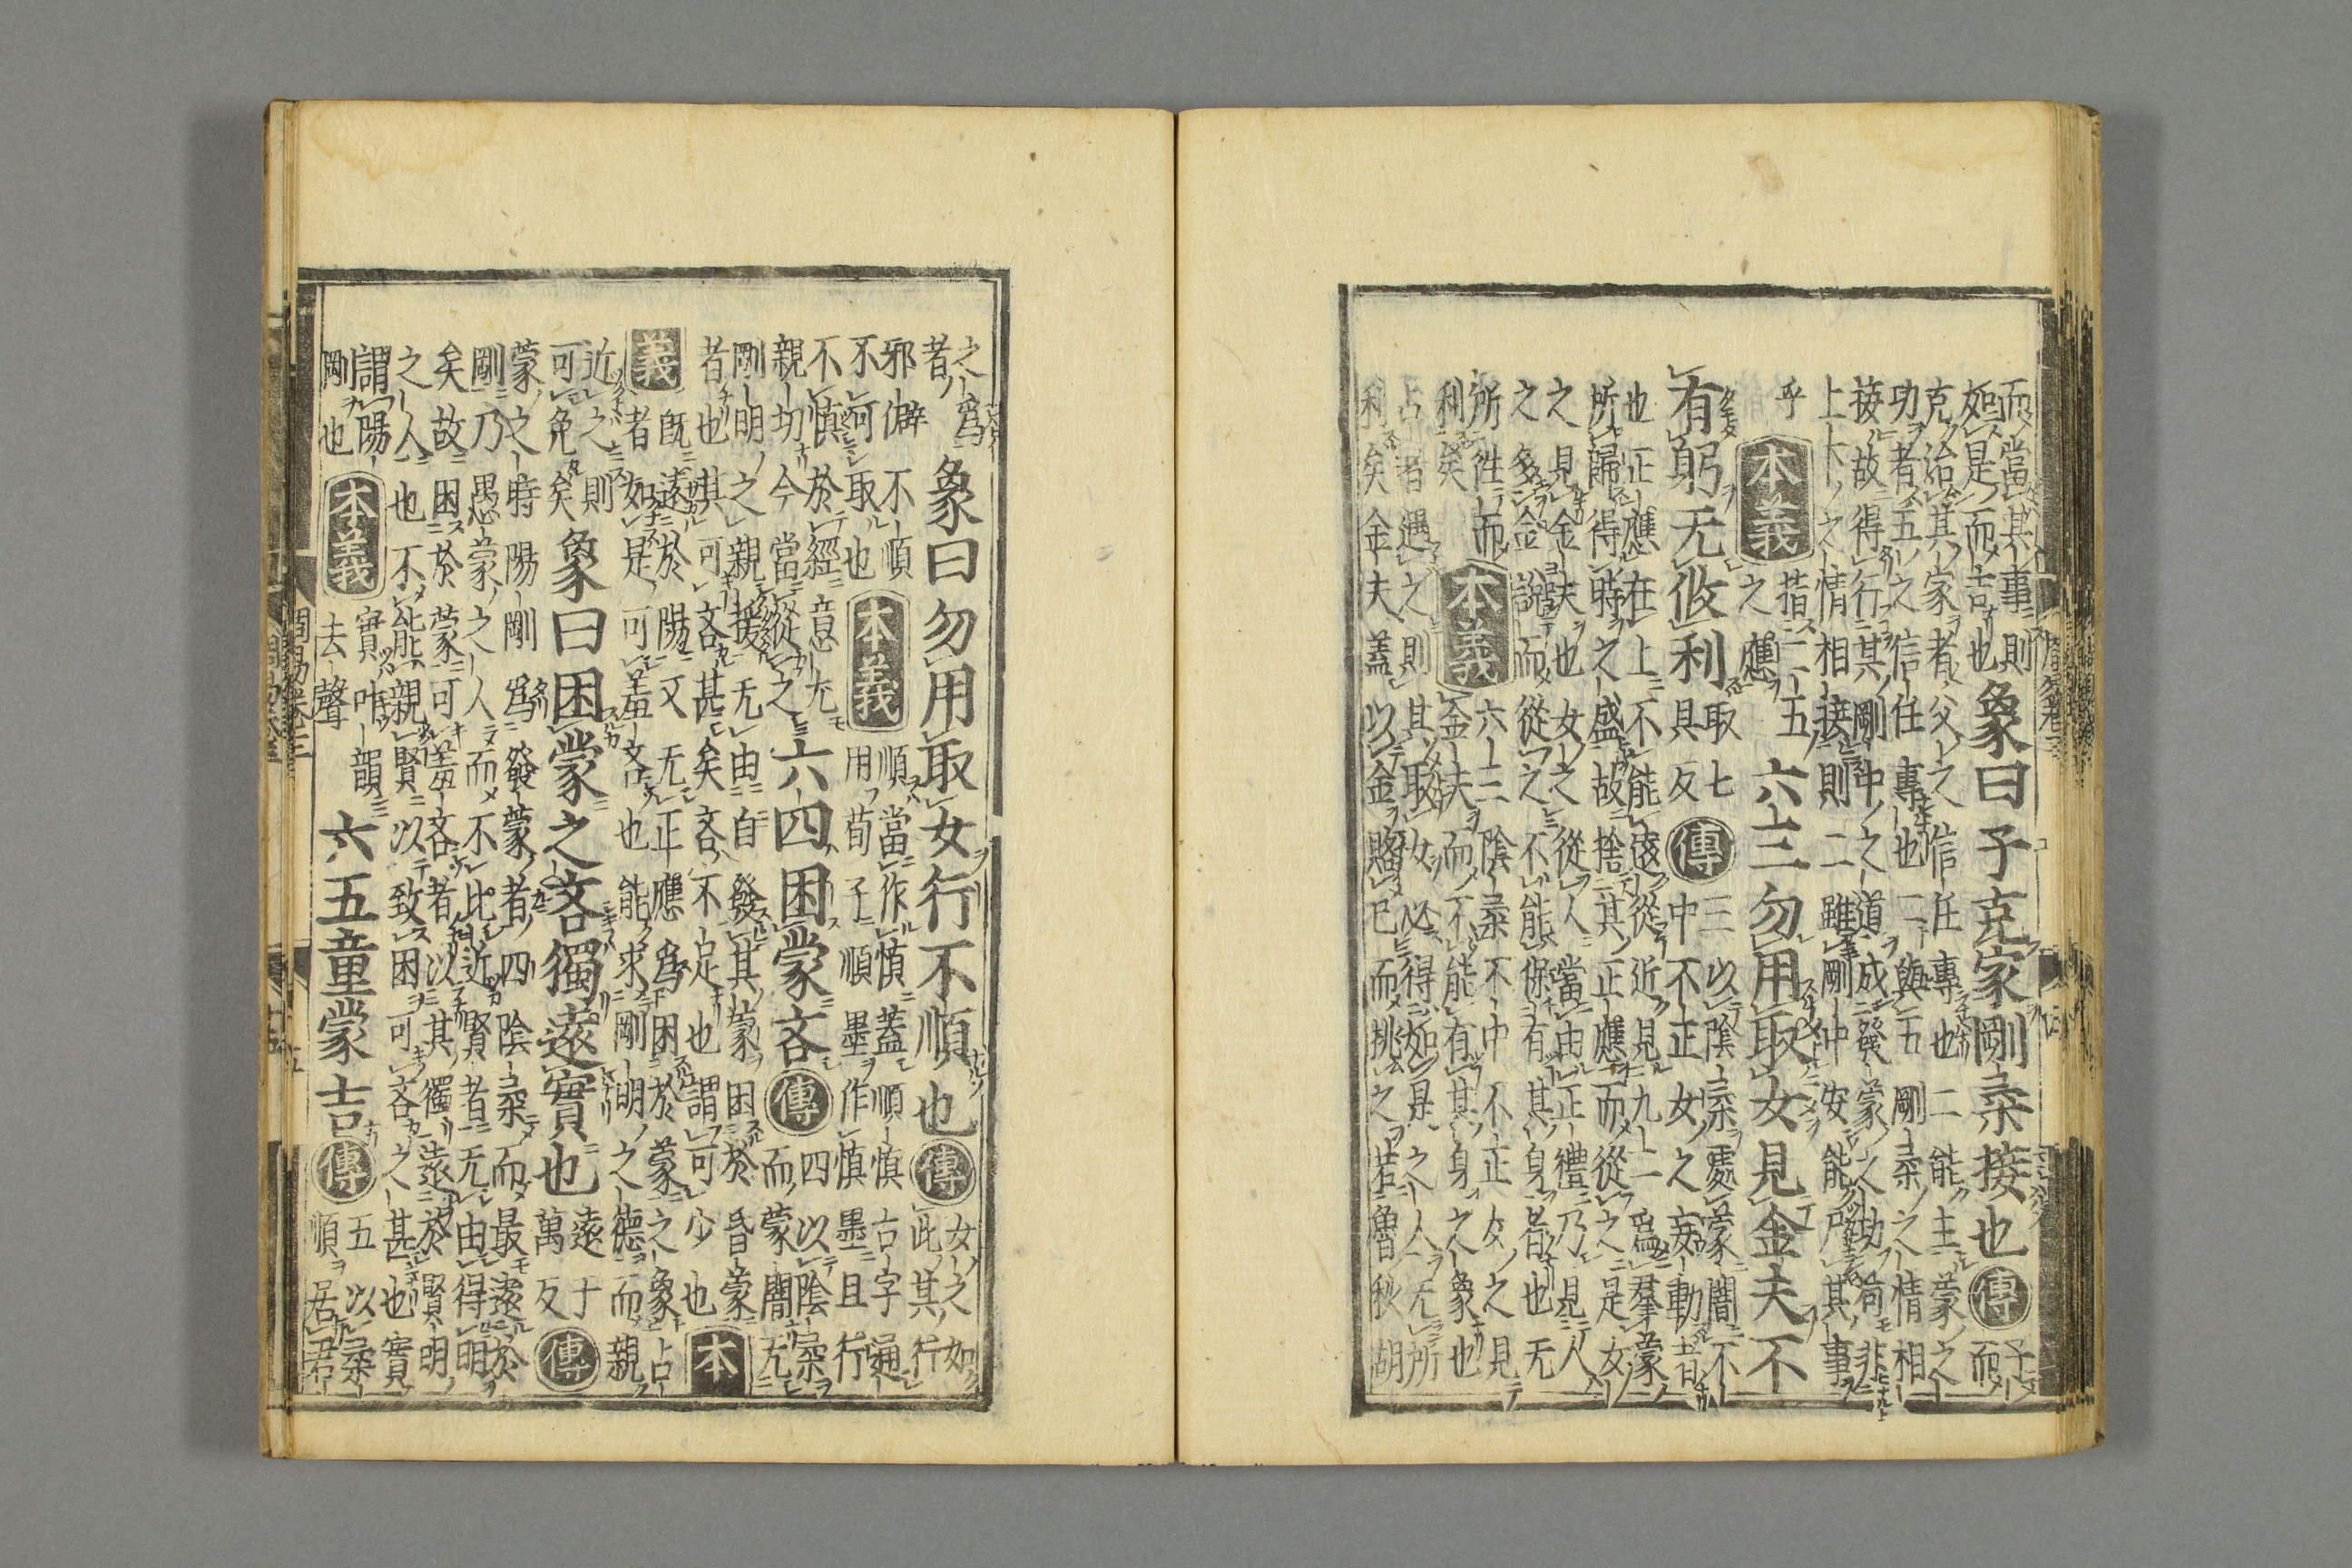 而當其事則
如是而吉也象曰子克家剛柔接也傳子而
克治其家者父之信任專也二能主蒙之
功者五之信任專也二與五剛柔之情相
接故得行其剛中之道成發蒙之功苟非
上下之情相接則二雖剛中安能尸其事
乎本義指二五之應六三勿用取女見金夫不
有躬无攸利取七具反傳三以陰柔處蒙闇不中不正女之妄動者
也正應在上不能遠從近見九二爲羣蒙
所歸得時之盛故捨其正應而從之是女
之見金夫也女之從人當由正禮乃見人
之多金說而從之不能保有其身者也无
所往而利矣本義六三陰柔不中不正女之見金夫而不能有其身之象也
占者遇之則其取女必得如是之人无所
利矣金夫蓋以金賂己而挑之若魯秋胡
之爲者象曰勿用取女行不順也傳女之如此其行
邪僻不順
不可取也本義順當作慎蓋順慎古字通用荀子順墨作慎墨且行
不慎於經意尤
親切今當從之六四困蒙吝傳四以陰柔而蒙闇无
剛明之親援无由自發其蒙困於昏蒙
者也其可吝甚矣吝不足也謂可少也本
義既遠於陽又无正應爲困於蒙之象占
者如是可羞吝也能求剛明之德而親
近之則可免矣象曰困蒙之吝獨遠實也遠于萬反傳
蒙之時陽剛爲發蒙者四陰柔而最遠於
剛乃愚蒙之人而不比近賢者无由得明
矣故困於蒙可羞吝者以其獨遠於賢明
之人也不能親賢以致困可吝之甚也實
謂陽剛也本義實叶韻去聲六五童蒙吉傳五以柔順居君